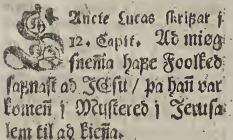 SAncte Lucas skrifar j
12. Capit. Ad miøg
snema hafe Foolked
safnast ad JEsu / þa hañ var
komeñ j Mustered j Jerusa-
lem til ad kieña.